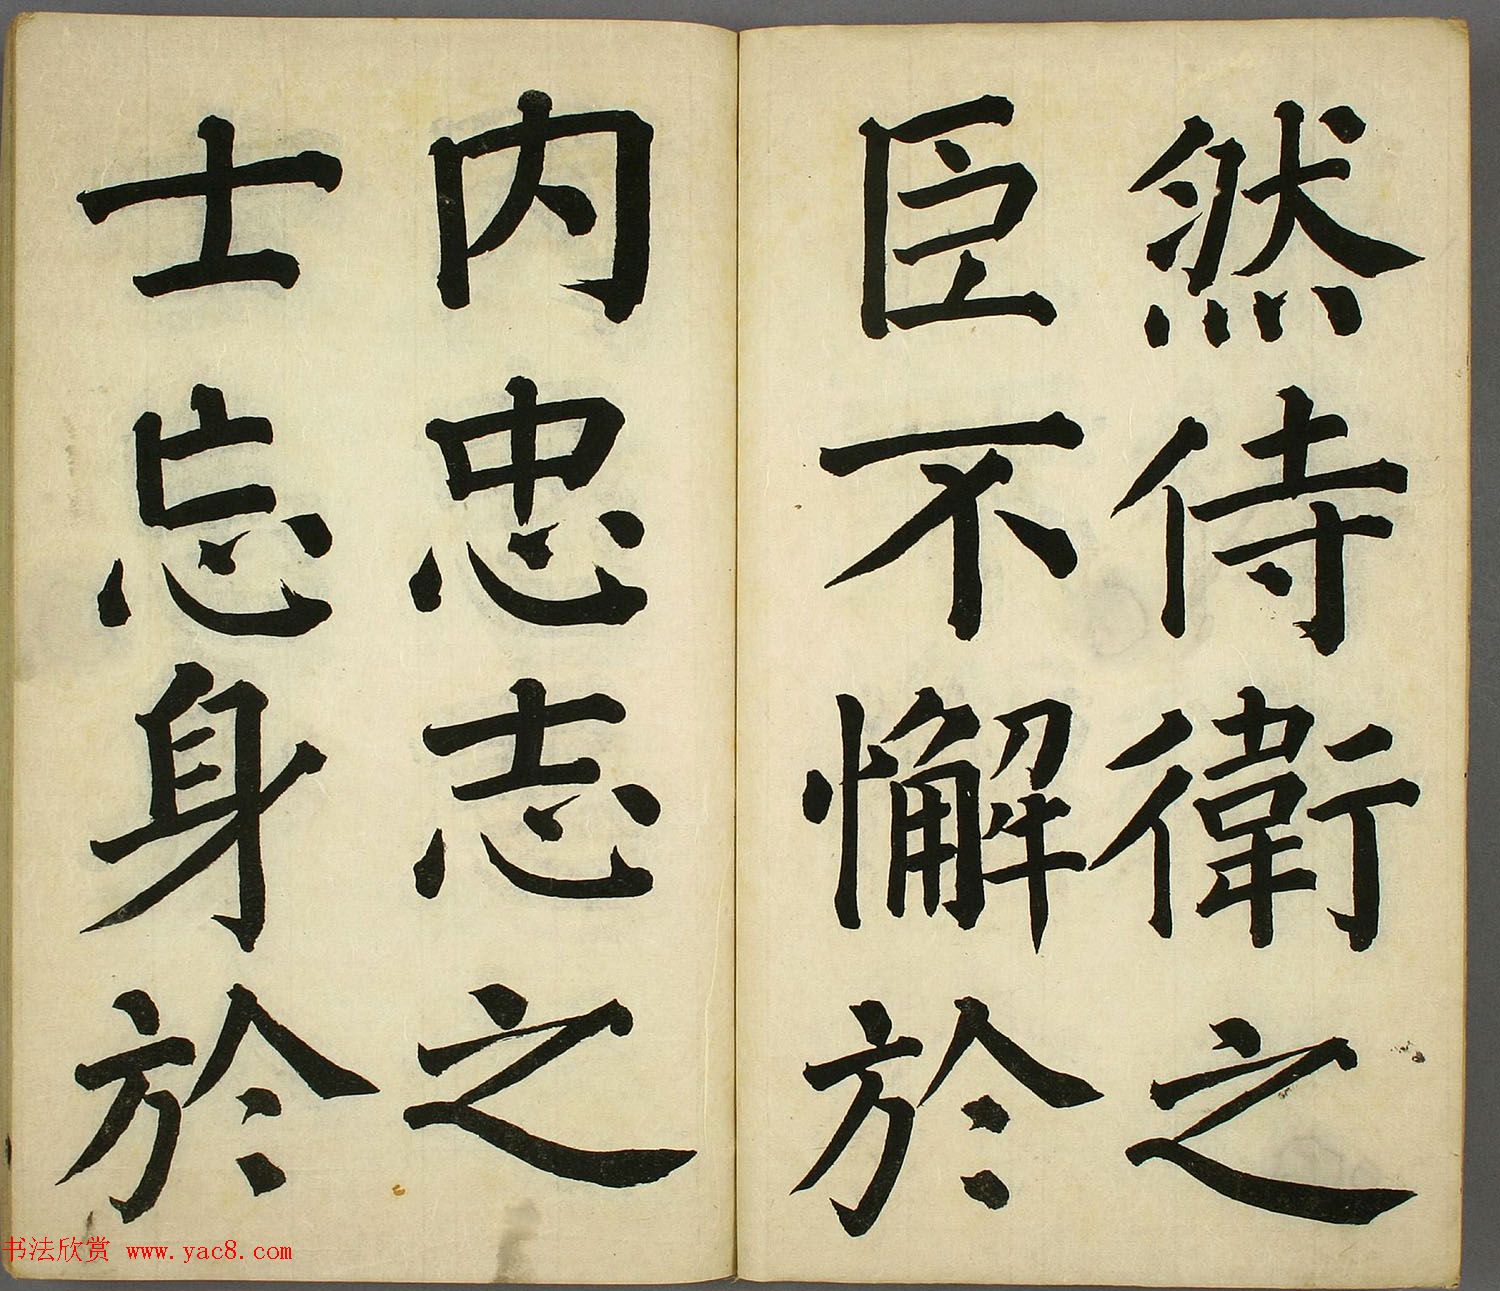 然侍衛之
臣不懈於
内忠志之
士忘身於
书法欣赏 www.yac8.com